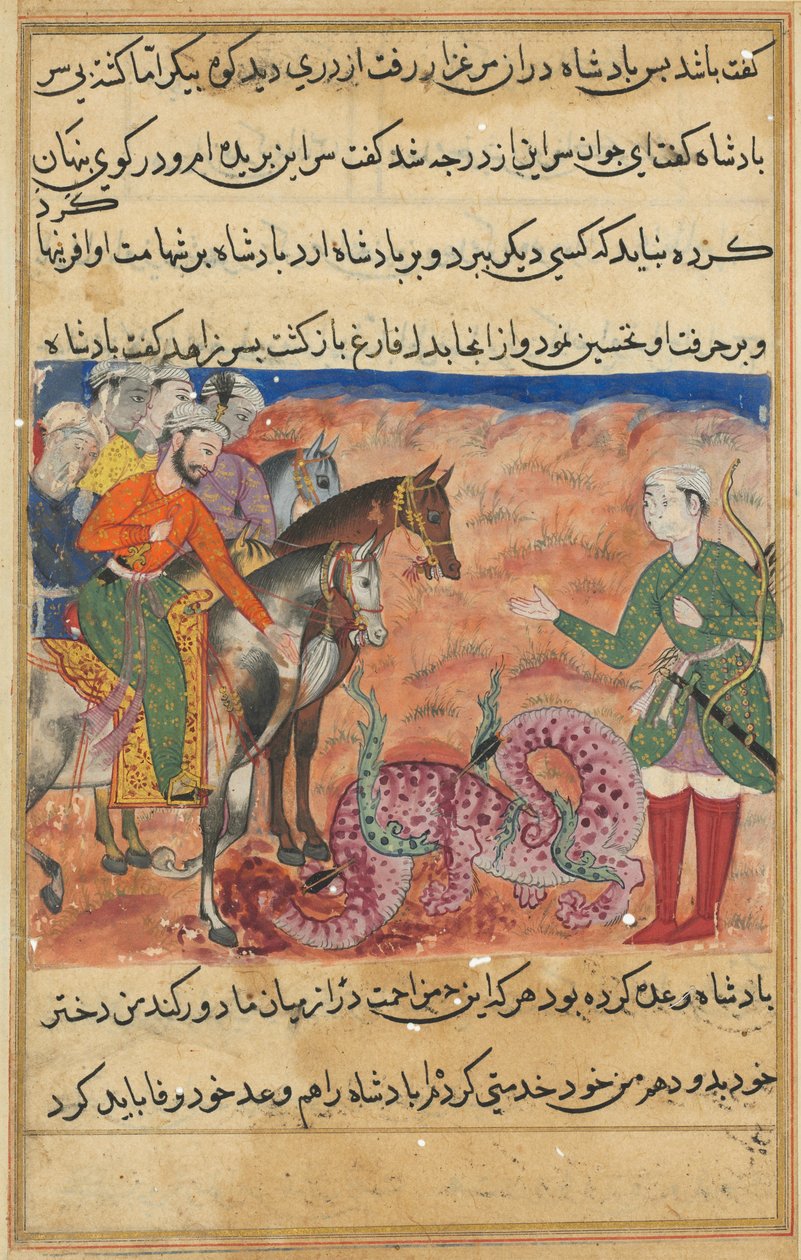 کفت باشد بس بادشاه دران مرغزار رفت ازدری دید کوه بیکر اما کشتۀ بی سر
بادشاه کفت ای جوان سر این ازدر چه شد کفت سر این بریده ام و در کوی بنهان
کرد
کرده نباید که کسی دیکر ببرد و بر بادشاه ارد بادشاه بر شهامت او افرینها
و بر حرفت او تحسین نمود و از انجا بدل فارغ باز کشت بسر زاهد کفت بادشاه
بادشاه وعده کرده بود هر که این مزاحمت را از میان ما دور کند من دختر
خود بدو دهم من خود خدمتی کردم بادشاه را هم وعد خود وفا باید کرد